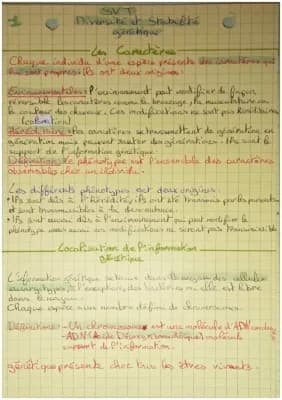 SVT
Diversité et Stabilité
génétique
Les Caractères
Chaque individu d'une espèce présente des caractères qui
lui sont propres. Ils ont deux origines:
Environnementales: l'environnement peut modifier de façon
réversible les caractères comme le bronzage, la musculature ou
la couleur des cheveux. Ces modifications ne sont pas héréditaires
Héréditaires: les caractères se transmettent de génération en
génération mais peuvent sauter des générations. Ils sont le
support de l'information génétique.
Définition: le phénotype est l'ensemble des caractères
observables chez un individu.
Les différents phénotypes ont deux origines:
• Ils sont dûs à l'hérédité, ils ont été transmis par les parents
et sont transmissibles à la descendance.
• Ils sont aussi dûs à l'environnement qui peut modifier le
phénotype mais aussi ces modifications ne seront pas transmissibles
Localisation de l'information
génétique
L'information génétique se trouve dans le noyau des cellules
eucaryotes, à l'exception des bactéries où elle est libre
dans le noyau.
Chaque espèce a un nombre défini de chromosomes.
Définitions: - Un chromosome est une molécule d'ADN
- ADN (Acide Désoxyribonucléique) molécule
support de l'information
génétique présente chez tous les êtres vivants.